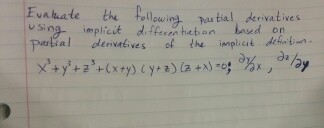 Evaluate the following partial derivatives
using implicit differentiation based on
partial derivatives of the implicit definition.
x³+y³+z³+(x+y)(y+z)(z+x)=0; ∂y/∂x, ∂z/∂y